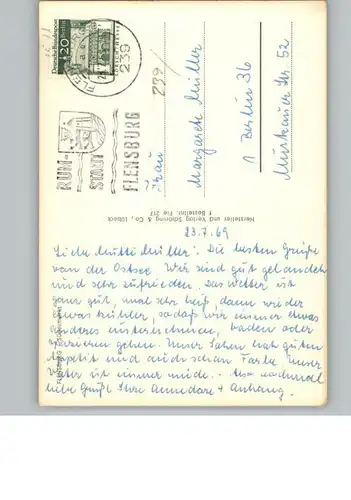 Deutsche Bundespost
20
239
RUM-
STADT
FLENSBURG
239
Frau
Margarete Müller
1 Berlin 36
Muskauer Str 52
Hersteller und Verlag Schöning & Co., Lübeck
Bestellnr. Fle 217
FLENSBURG
23.7.69
Liebe Mutti Müller. Die besten Grüße
van der Ostsee. Wir sind gut gelandet
und sehr zufrieden. Das Wetter ist
ganz gut, mal sehr heiß, dann wieder
etwas kühler, sodaß wir immer etwas
anderes unternehmen, baden oder
spazieren gehen. Unser Sohn hat guten
Appetit und auch schon Farbe. Unser
Vater ist immer müde. - Also nochmal
liebe Grüße Ihre Annedore + Anhang.